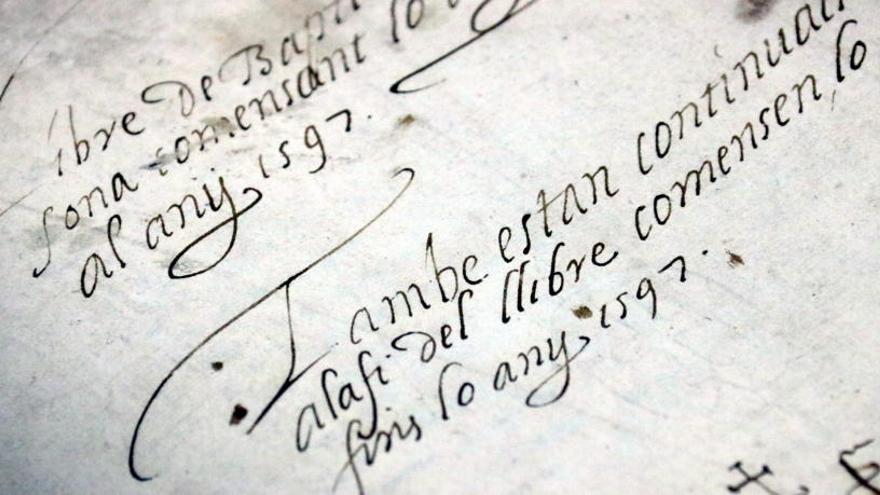 ibre de Bapti
sona comensant lo
al any 1597.
Tambe estan continuat
alafi del llibre comensen lo
fins lo any 1597.